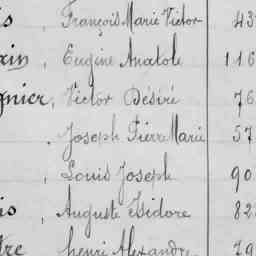 is, François Marie Victor 43
xin, Eugène Anatole 116
gnier, Victor Désiré 76
, Joseph Pierre Marie 57
, Louis Joseph 90
is, Auguste Isidore 82
re henri Alexandre 79